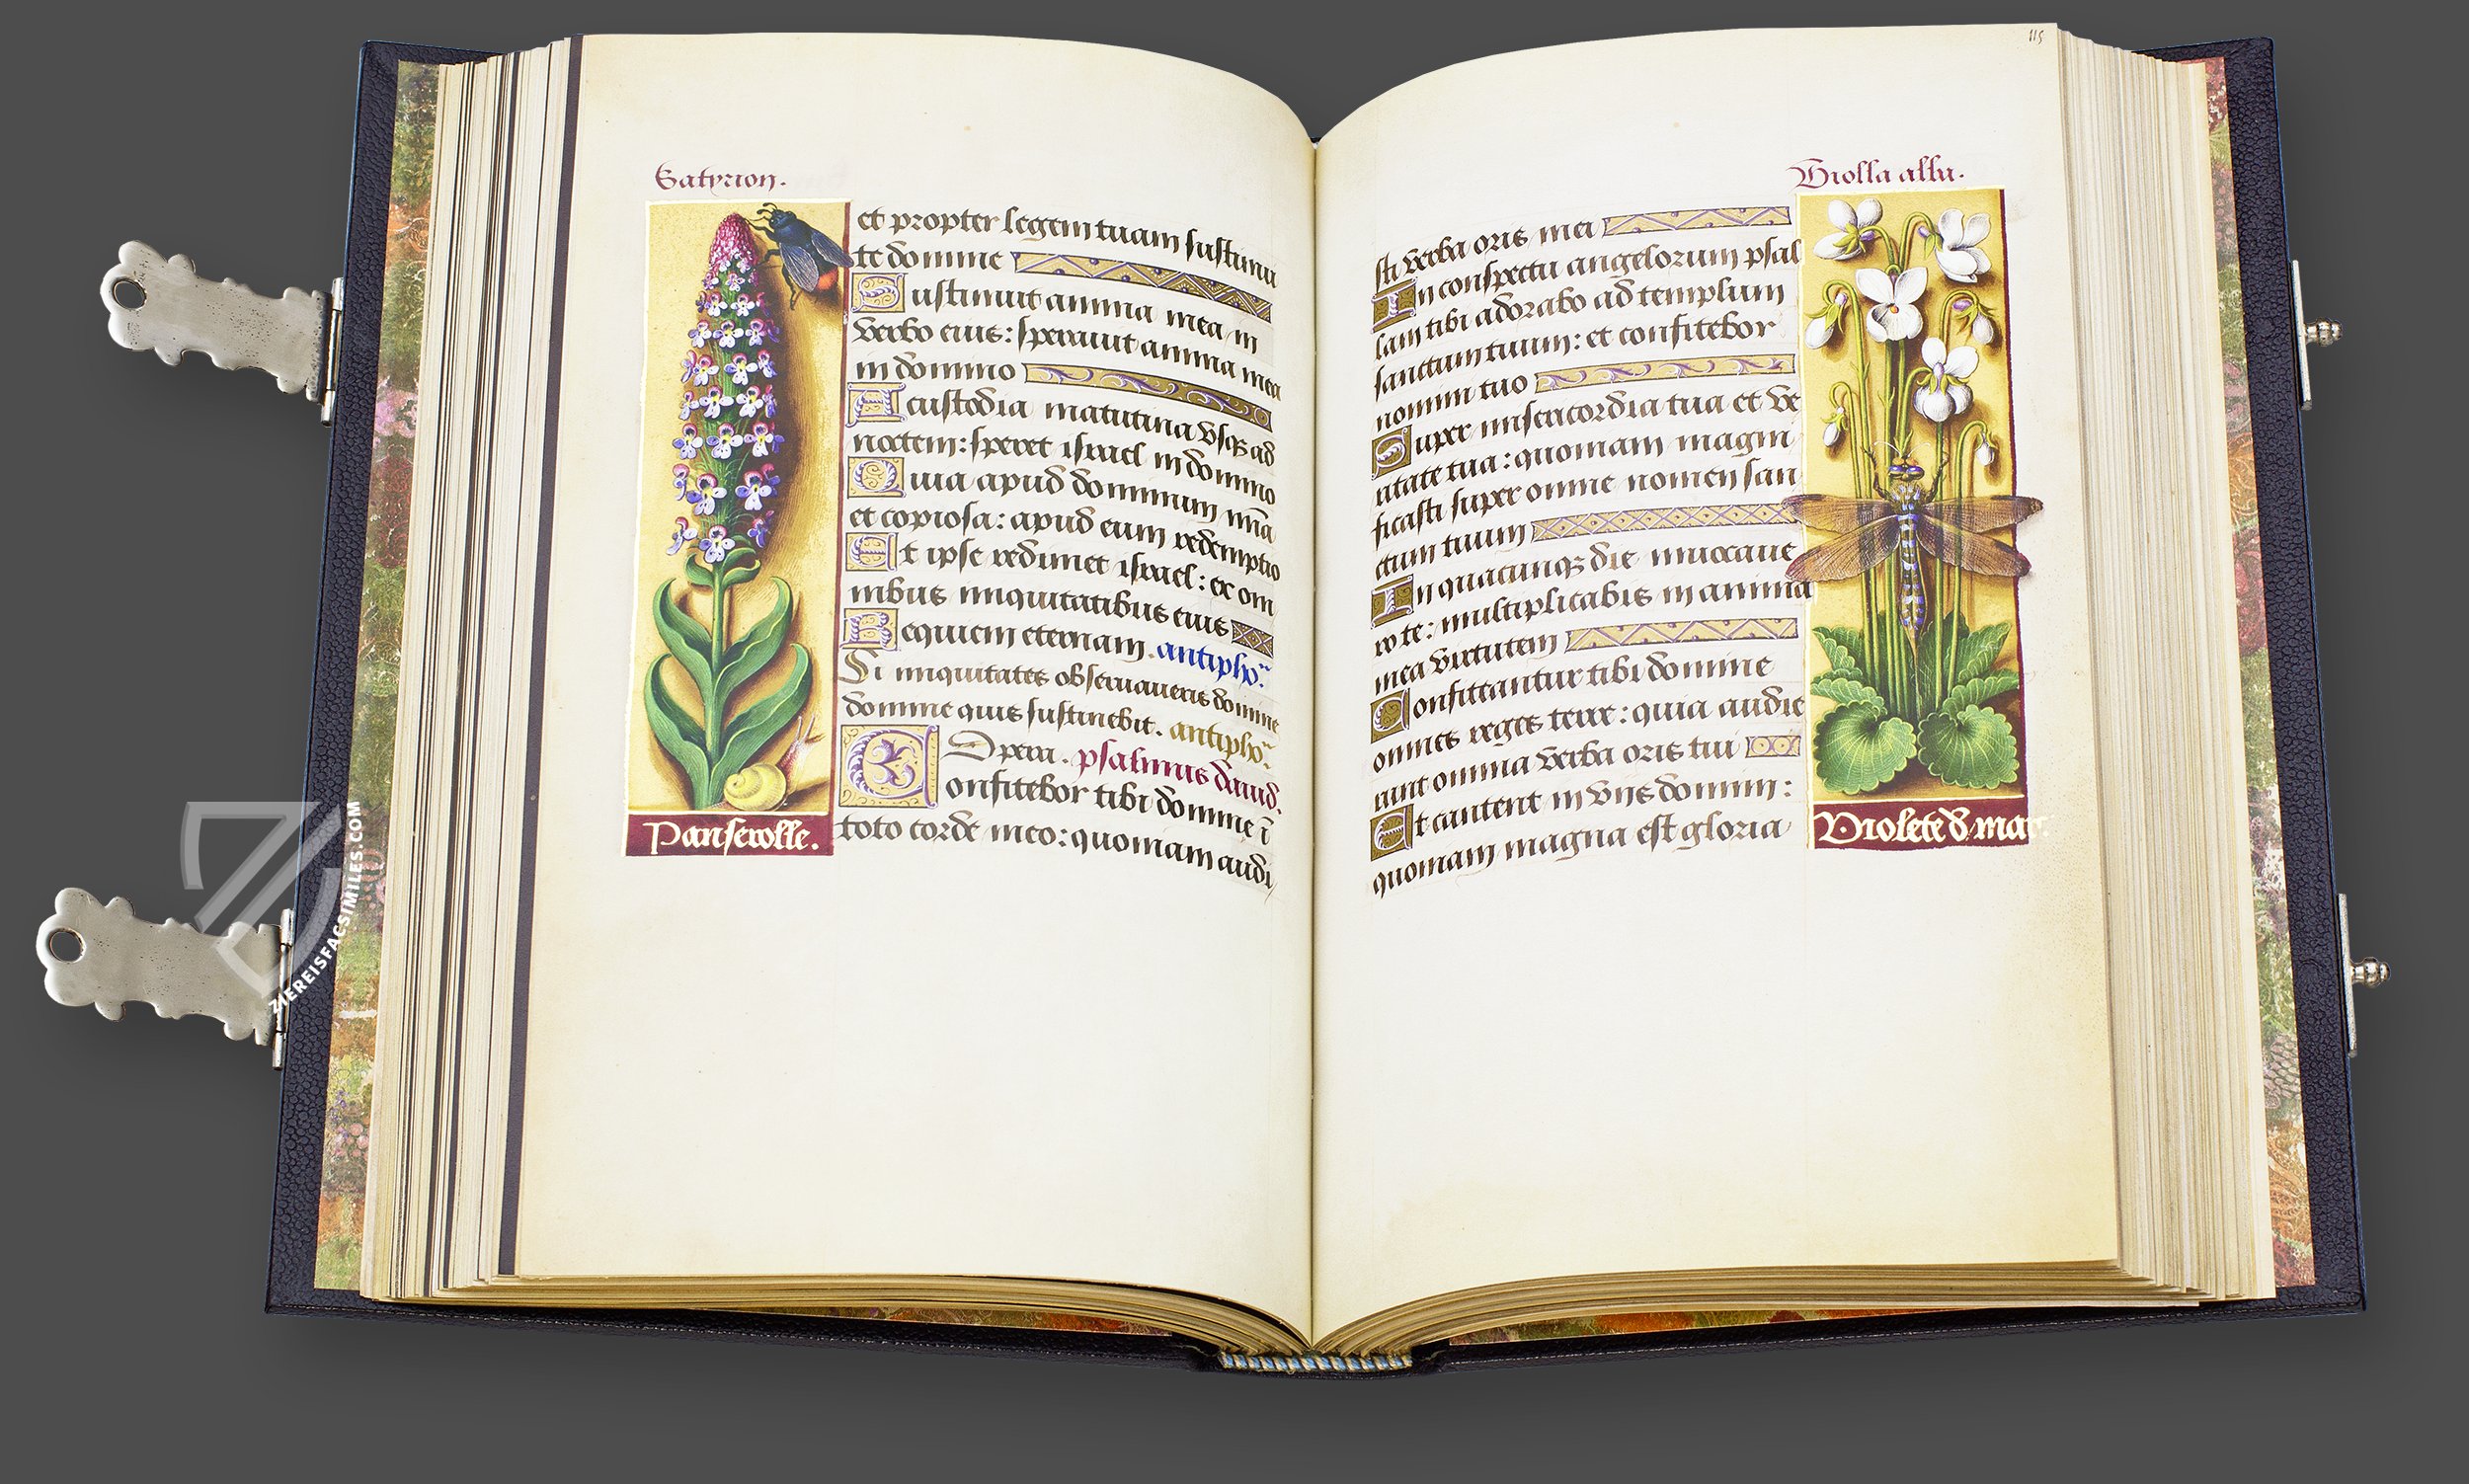 Satyrion.
et propter legem tuam sustinui
te domine
Sustinuit anima mea in
verbo eius: speravit anima mea
in domino
A custodia matutina usq; ad
noctem: speret israel in domino
Quia apud dominum mia
et copiosa: apud eum redemptio
Et ipse redimet israel: ex om
nibus iniquitatibus eius
Requiem eternam. antipho.
Si iniquitates observaveris domine
domine quis sustinebit. antipho.
Opera. psalmus david.
Confitebor tibi domine i
toto corde meo: quoniam audi
Panserolle.
115
Violla alba.
sti verba oris mei
In conspectu angelorum psal
lam tibi adorabo ad templum
sanctum tuum: et confitebor
nomini tuo
Super misericordia tua et ve
ritate tua: quoniam magni
ficasti super omne nomen san
ctum tuum
In quacunq; die invocave
ro te: multiplicabis in anima
mea virtutem
Confiteantur tibi domine
omnes reges terre: quia audie
runt omnia verba oris tui
Et cantent in viis domini:
quoniam magna est gloria
Violete d mar
ZIEREISFACSIMILES.COM